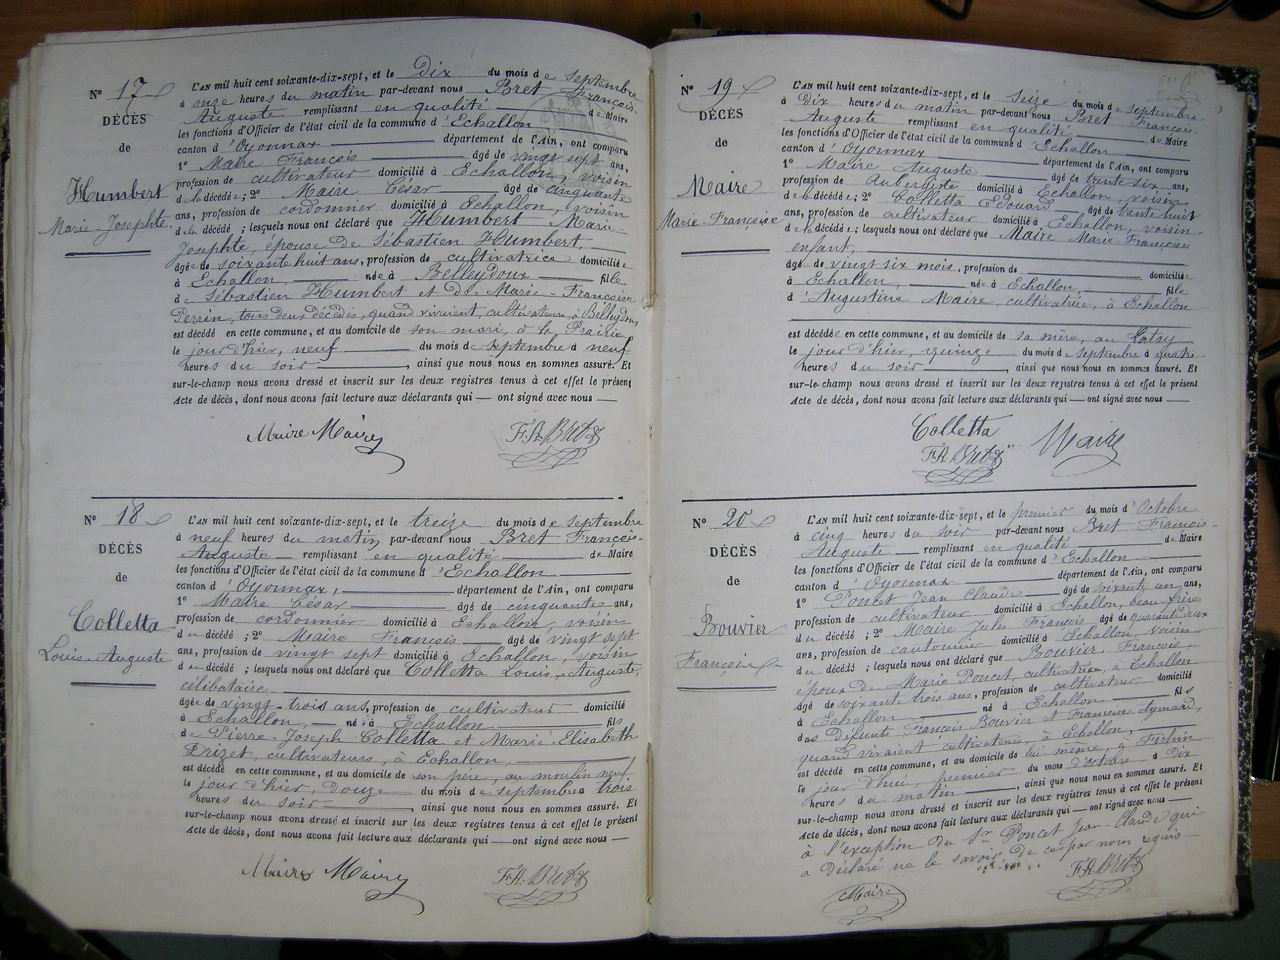 N° 17
DÉCÈS
de
Humbert
Marie-Josephte
L'AN mil huit cent soixante-dix-sept, et le Dix du mois de septembre
à onze heures du matin par-devant nous Bret François-
Auguste remplissant en qualité de Maire
les fonctions d'Officier de l'état civil de la commune d'Echallon
canton d'Oyonnax département de l'Ain, ont comparu
1° Maire François âgé de vingt sept ans,
profession de cultivateur domicilié à Echallon, voisin
de la décédée; 2° Maire César âgé de cinquante
ans, profession de cordonnier domicilié à Echallon, voisin
de la décédé ; lesquels nous ont déclaré que Humbert Marie-
Josephte, épouse de Sébastien Humbert
âgée de soixante huit ans, profession de cultivatrice domiciliée
à Echallon, née à Belleydoux fille
de Sébastien Humbert et de Marie-Françoise
Perrin, tous deux décédés, quand vivaient, cultivateurs, à Belleydoux
est décédé en cette commune, et au domicile de son mari, à la Prairie
le jour d'hier, neuf du mois de septembre à neuf
heures du soir, ainsi que nous nous en sommes assuré. Et
sur-le-champ nous avons dressé et inscrit sur les deux registres tenus à cet effet le présent
Acte de décès, dont nous avons fait lecture aux déclarants qui — ont signé avec nous —
Maire Maire F. A. Bret
N° 18
DÉCÈS
de
Colletta
Louis-Auguste
L'AN mil huit cent soixante-dix-sept, et le treize du mois de septembre
à neuf heures du matin, par-devant nous Bret François-
Auguste remplissant en qualité de Maire
les fonctions d'Officier de l'état civil de la commune d'Echallon
canton d'Oyonnax, département de l'Ain, ont comparu
1° Maire César âgé de cinquante ans,
profession de cordonnier domicilié à Echallon, voisin
du décédé ; 2° Maire François âgé de vingt sept
ans, profession de vingt sept domicilié à Echallon, voisin
du décédé ; lesquels nous ont déclaré que Colletta Louis-Auguste,
célibataire
âgé de vingt-trois ans, profession de cultivateur domicilié
à Echallon, né à Echallon fils
de Pierre-Joseph Colletta et Marie Elisabeth
Grizet, cultivateurs, à Echallon,
est décédé en cette commune, et au domicile de son père, au moulin neuf,
le jour d'hier, douze du mois de septembre à trois
heures du soir, ainsi que nous nous en sommes assuré. Et
sur-le-champ nous avons dressé et inscrit sur les deux registres tenus à cet effet le présent
Acte de décès, dont nous avons fait lecture aux déclarants qui — ont signé avec nous —
Maire Maire F. A. Bret
N° 19
DÉCÈS
de
Maire
Marie-Françoise
L'AN mil huit cent soixante-dix-sept, et le seize du mois de septembre
à Dix heures du matin par-devant nous Bret François-
Auguste remplissant en qualité de Maire
les fonctions d'Officier de l'état civil de la commune d'Echallon
canton d'Oyonnax département de l'Ain, ont comparu
1° Maire Auguste âgé de trente six ans,
profession de Aubergiste domicilié à Echallon, voisin
de la décédée; 2° Colletta Edouard âgé de trente huit
ans, profession de cultivateur domicilié à Echallon, voisin
de la décédée; lesquels nous ont déclaré que Maire Marie Françoise
enfant
âgée de vingt six mois, profession de domiciliée
à Echallon, née à Echallon, fille
d'Augustine Maire, cultivatrice, à Echallon
est décédée en cette commune, et au domicile de sa mère, au
le jour d'hier, quinze du mois de septembre à quatre
heures du soir, ainsi que nous nous en sommes assuré. Et
sur-le-champ nous avons dressé et inscrit sur les deux registres tenus à cet effet le présent
Acte de décès, dont nous avons fait lecture aux déclarants qui — ont signé avec nous —
Colletta Maire
F. A. Bret
N° 20
DÉCÈS
de
Bouvier
François
L'AN mil huit cent soixante-dix-sept, et le premier du mois d'Octobre
à cinq heures du soir par-devant nous Bret François-
Auguste remplissant en qualité de Maire
les fonctions d'Officier de l'état civil de la commune d'Echallon
canton d'Oyonnax département de l'Ain, ont comparu
1° Poncet Jean Claude âgé de soixante un ans,
profession de cultivateur domicilié à Echallon, beau frère
du décédé ; 2° Maire Jules François âgé de quarante deux
ans, profession de cantonnier domicilié à Echallon, voisin
du décédé ; lesquels nous ont déclaré que Bouvier François,
époux de Marie Poncet, cultivatrice, à Echallon
âgé de soixante trois ans, profession de cultivateur domicilié
à Echallon né à Echallon fils
des Défunts François Bouvier et Françoise Aymard,
quand vivaient cultivateurs, à Echallon,
est décédé en cette commune, et au domicile de lui même, à
le jour d'hui, premier du mois d'octobre à Dix
heures du matin, ainsi que nous nous en sommes assuré. Et
sur-le-champ nous avons dressé et inscrit sur les deux registres tenus à cet effet le présent
Acte de décès, dont nous avons fait lecture aux déclarants qui — ont signé avec nous —
à l'exception du Sr Poncet Jean-Claude qui
a déclaré ne le savoir, de ce par nous requis
Maire F. A. Bret